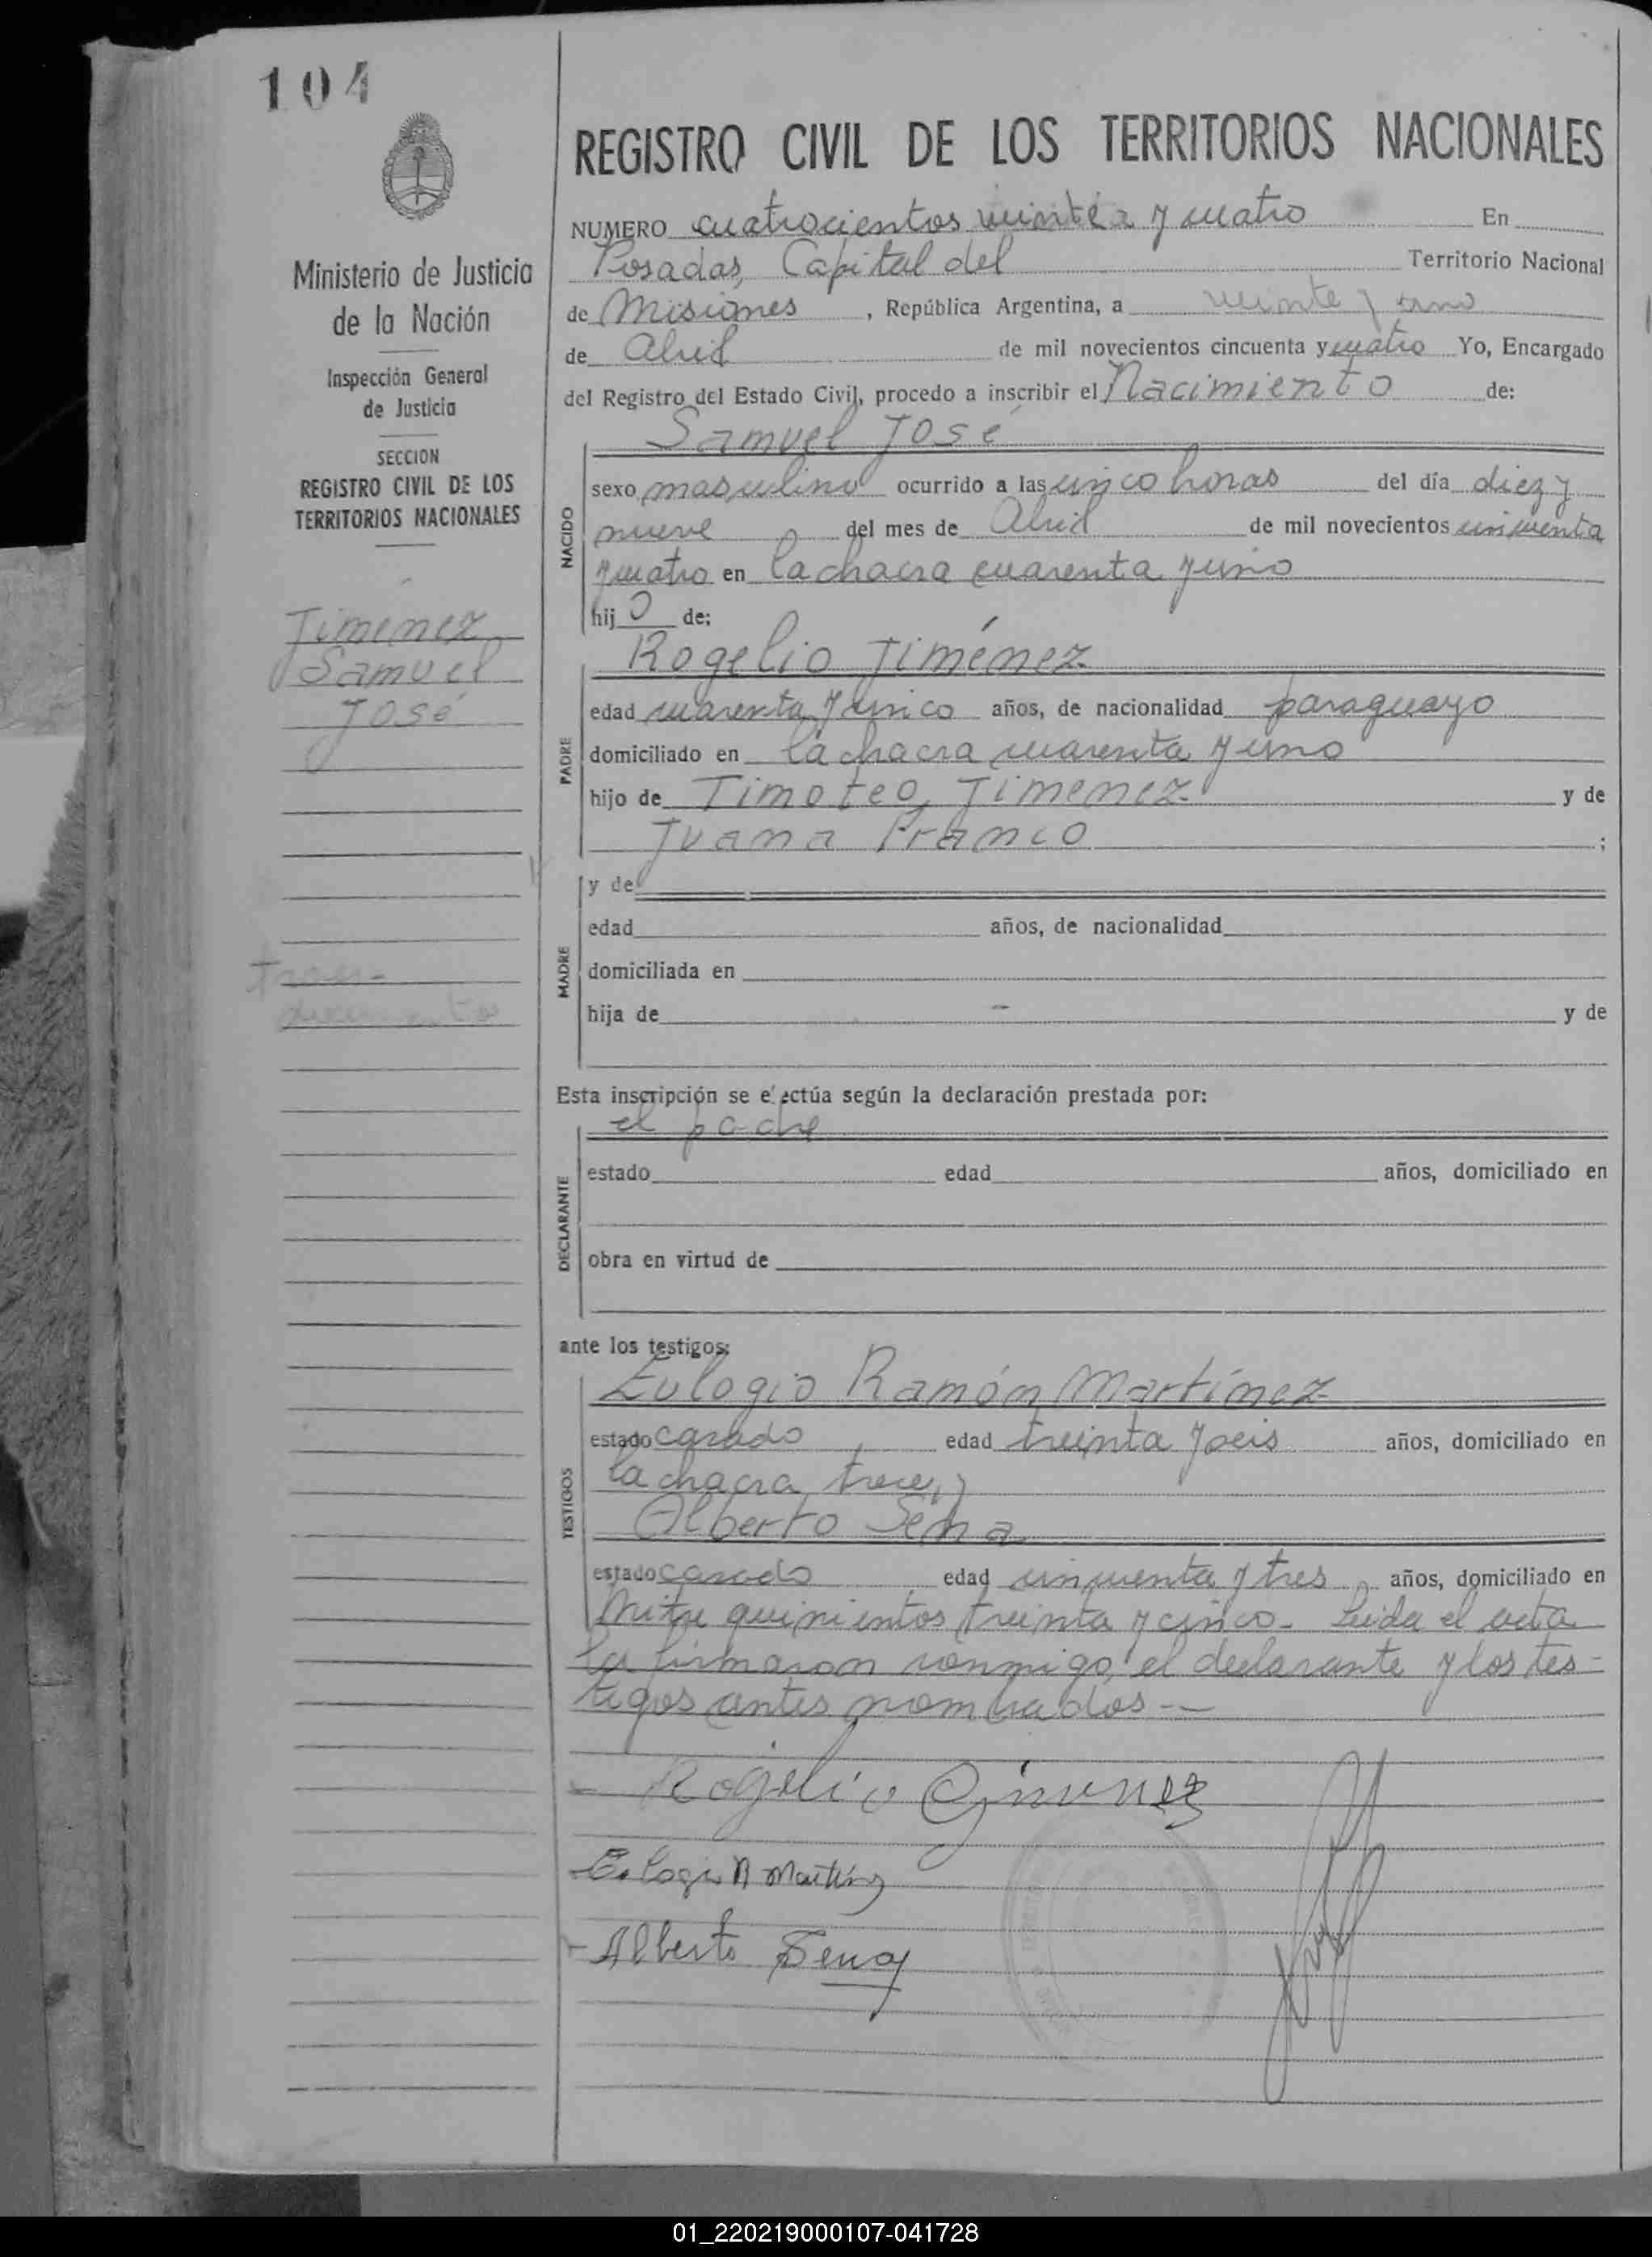 104
REGISTRO CIVIL DE LOS TERRITORIOS NACIONALES
NUMERO cuatrocientos veintea y cuatro En
Posadas, Capital del Territorio Nacional
de Misiones, República Argentina, a veinte y uno
de Abril de mil novecientos cincuenta y cuatro Yo, Encargado
del Registro del Estado Civil, procedo a inscribir el Nacimiento de:
Ministerio de Justicia
de la Nación
Inspección General
de Justicia
SECCION
REGISTRO CIVIL DE LOS
TERRITORIOS NACIONALES
Jiménez
Samuel
José
NACIDO
Samuel José
sexo masculino ocurrido a las cinco horas del día diez y
nueve del mes de Abril de mil novecientos cincuenta
y cuatro en la chacra cuarenta y uno
hijo de:
PADRE
Rogelio Jiménez
edad cuarenta y cinco años, de nacionalidad paraguayo
domiciliado en la chacra cuarenta y uno
hijo de Timoteo Jimenez y de
Juana Franco ;
MADRE
y de
edad años, de nacionalidad
domiciliada en
hija de - y de
Esta inscripción se efectúa según la declaración prestada por:
DECLARANTE
el padre
estado edad años, domiciliado en
obra en virtud de
ante los testigos:
TESTIGOS
Eulogio Ramón Martínez
estado casado edad treinta y seis años, domiciliado en
la chacra trece, y
Alberto Sena
estado casado edad cincuenta y tres años, domiciliado en
Mitre quinientos treinta y cinco. Leida el acta
la firmaron conmigo, el declarante y los tes-
tigos antes nombrados.-
Rogelio Gimenez
Eulogio R Martínez
Alberto Sena
01_220219000107-041728